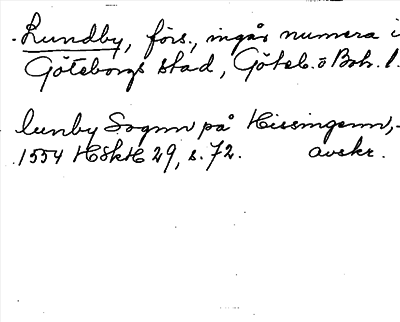 Lundby, förs., ingår numera i
Göteborgs stad, Göteb. o Boh. l.
lunby Sognn på Hissingenn,
1554 HSkH 29, s. 72. avskr.